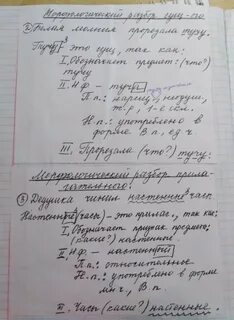 Морфологический разбор сущ-ого
② Белая молния прорезала тучу.
Тучу³ – это сущ, так как:
I. Обозначает предмет: (что?)
тучу
II. Н.Ф – туча
П.п.: нариц, неодуш,
1-е скл.
Н.п.: употреблено в
форме В.п., ед.ч.
III. Прорезала (что?) тучу.
Морфологический разбор прила-
гательного.
③ Дедушка чинил настенные³ часы
Настенные (часы) – это прилаг., так как:
I. Обозначает признак предмета:
(какие?) настенные.
II. Н.ф – настенный
П.п.: относительные
Н.п.: употреблено в форме
мн.ч., В.п.
II. Часы (какие?) настенные.